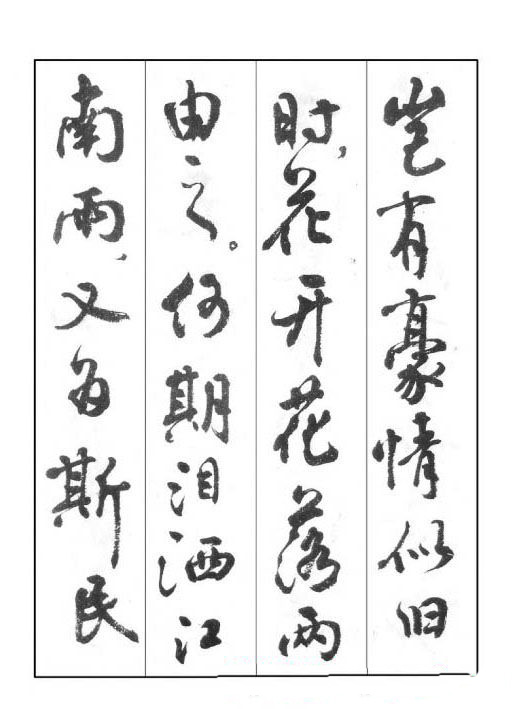 岂有豪情似旧
时，花开花落两
由之。何期泪洒江
南雨，又为斯民